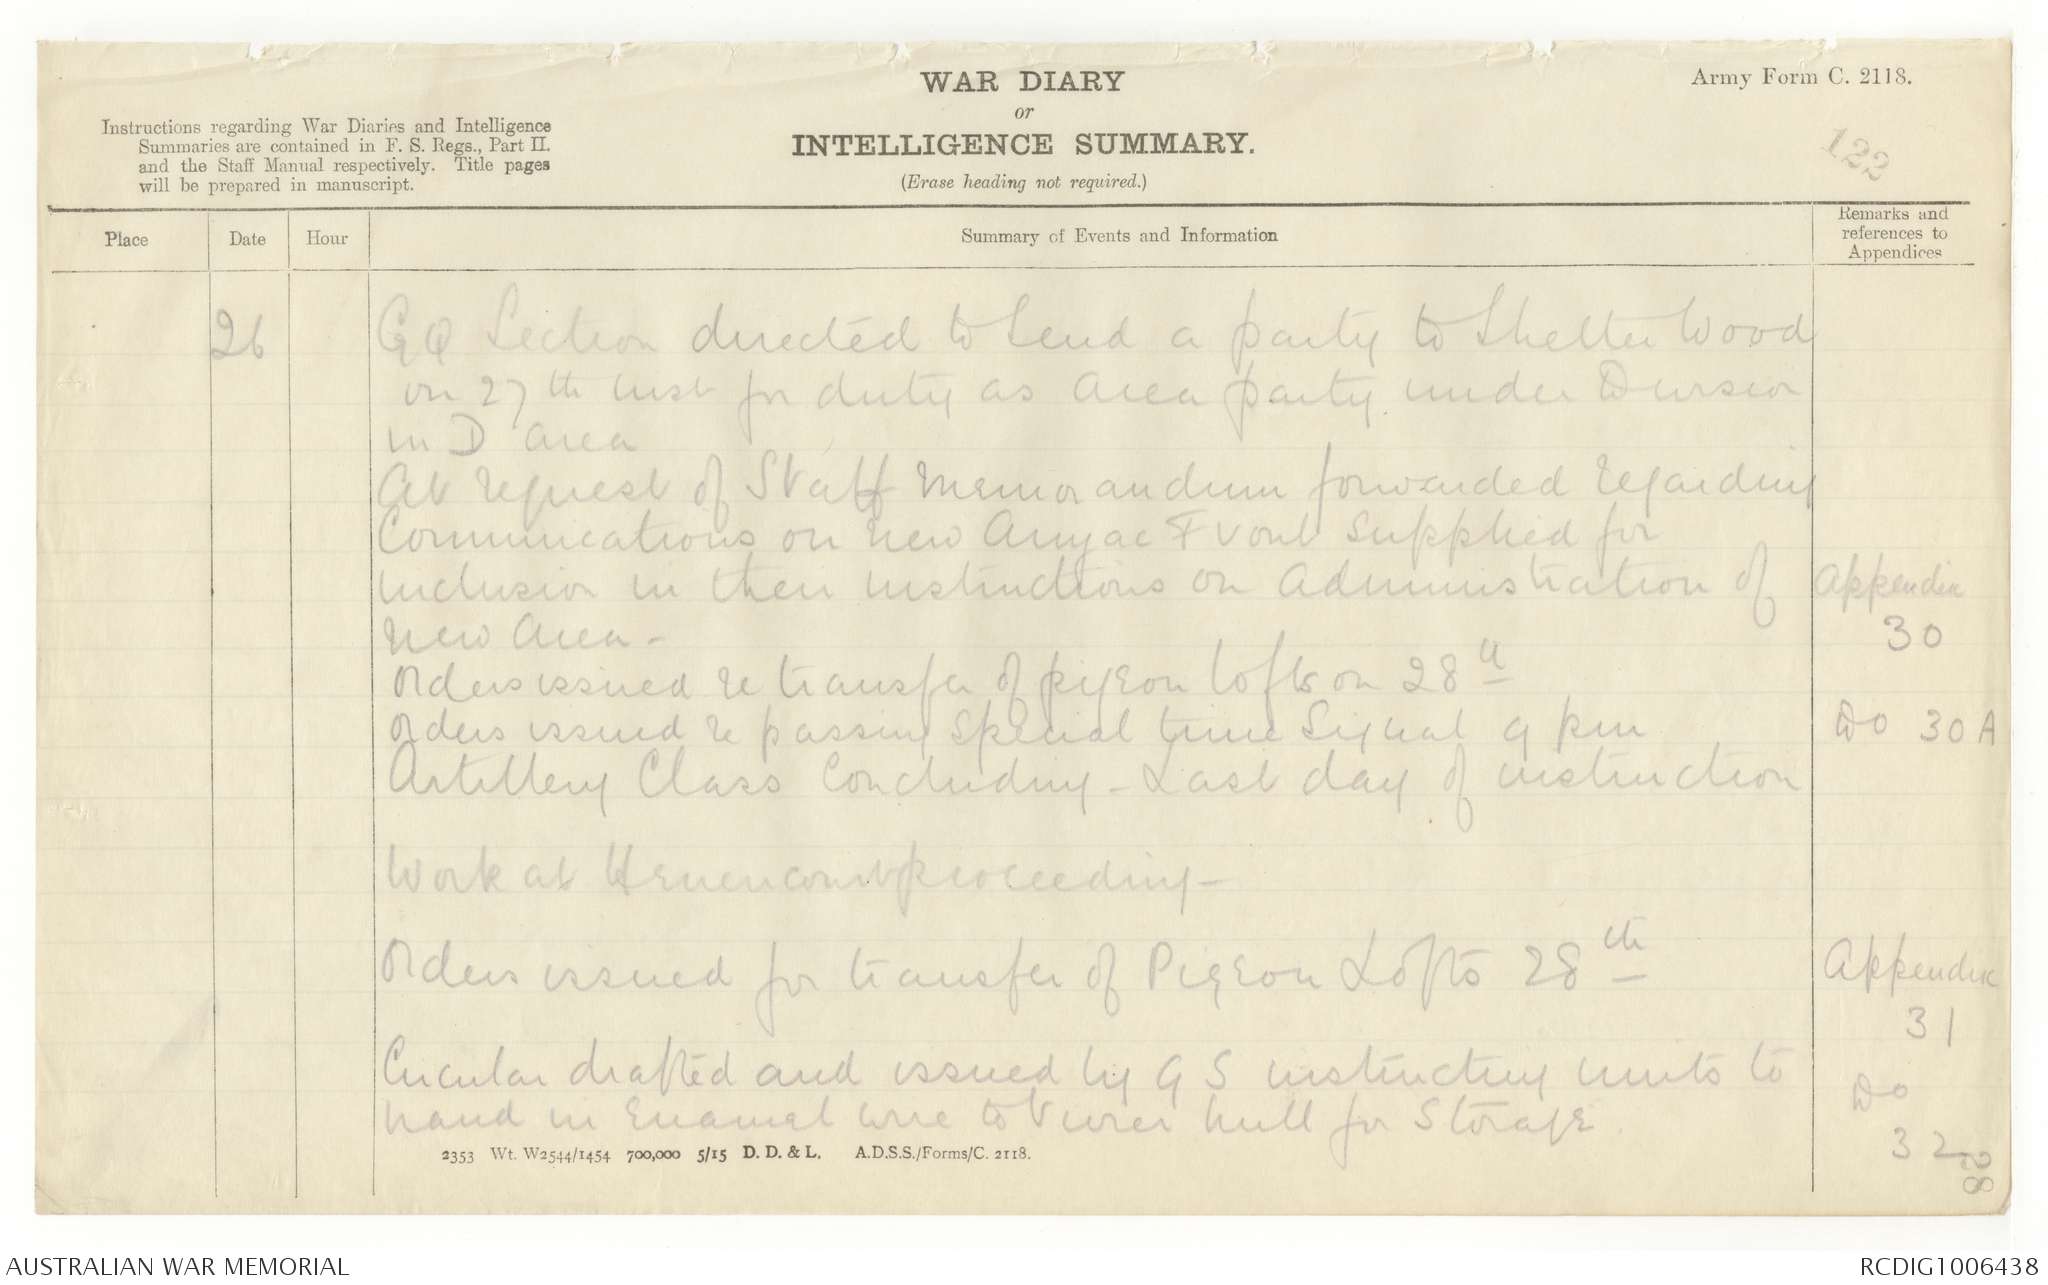 WAR DIARY
or
INTELLIGENCE SUMMARY.
(Erase heading not required.)
Army Form C. 2118.
122
Instructions regarding War Diaries and Intelligence
Summaries are contained in F. S. Regs., Part II.
and the Staff Manual respectively. Title pages
will be prepared in manuscript.
Place
Date
Hour
Summary of Events and Information
Remarks and
references to
Appendices
26
Section directed to send a party to Shelter Wood
on 27th inst for duty as area party under Division
in D area
At request of Staff memorandum forwarded regarding
Communications on new Anzac Front supplied for
inclusion in their instructions on administration of
new area -
Appendix
30
Orders issued re transfer of pigeon lofts on 28th
Orders issued re passing special time signal 9 pm
Do 30A
Artillery Class Concluding - Last day of instruction
Work at Henencourt proceeding -
Orders issued for transfer of Pigeon Lofts 28th
Appendix
31
Circular drafted and issued by G S instructing units to
hand in Enamel wire to Vivier Mill for Storage.
Do
32
2353 Wt. W2544/1454 700,000 5/15 D. D. & L. A.D.S.S./Forms/C. 2118.
AUSTRALIAN WAR MEMORIAL
RCDIG1006438